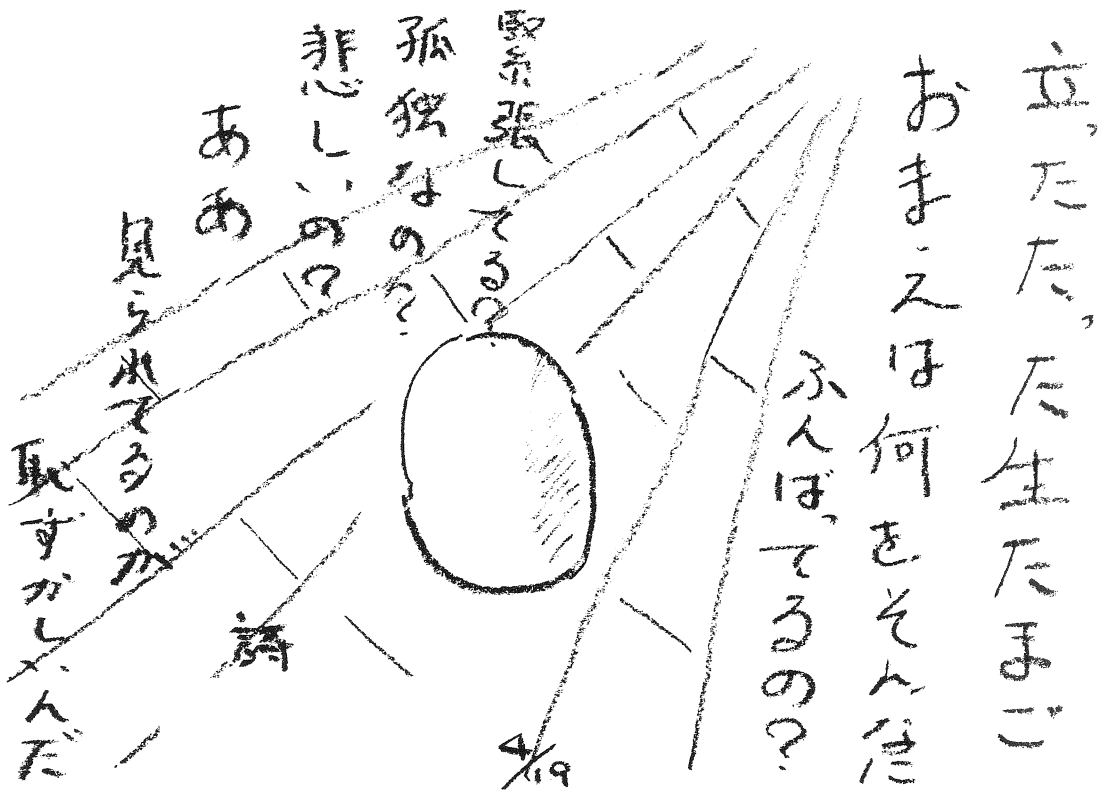 立った、たった生たまご
おまえは何をそんなに
ふんばってるの?
緊張してる?
孤独なの?
悲しいの?
ああ
見られてるのが…
恥ずかしいんだ
4/19